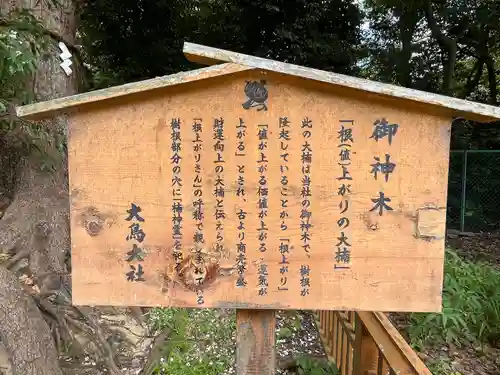 御神木
「根(値)上がりの大楠」
此の大楠は当社の御神木で、樹根が
隆起していることから「根上がり」
「値が上がる価値が上がる・運気が
上がる」とされ、古より商売繁盛
財運向上の大楠と伝えられ
「根上がりさん」の呼称で親しまれている
樹根部分の穴に「神神霊」を祀る
大鳥大社